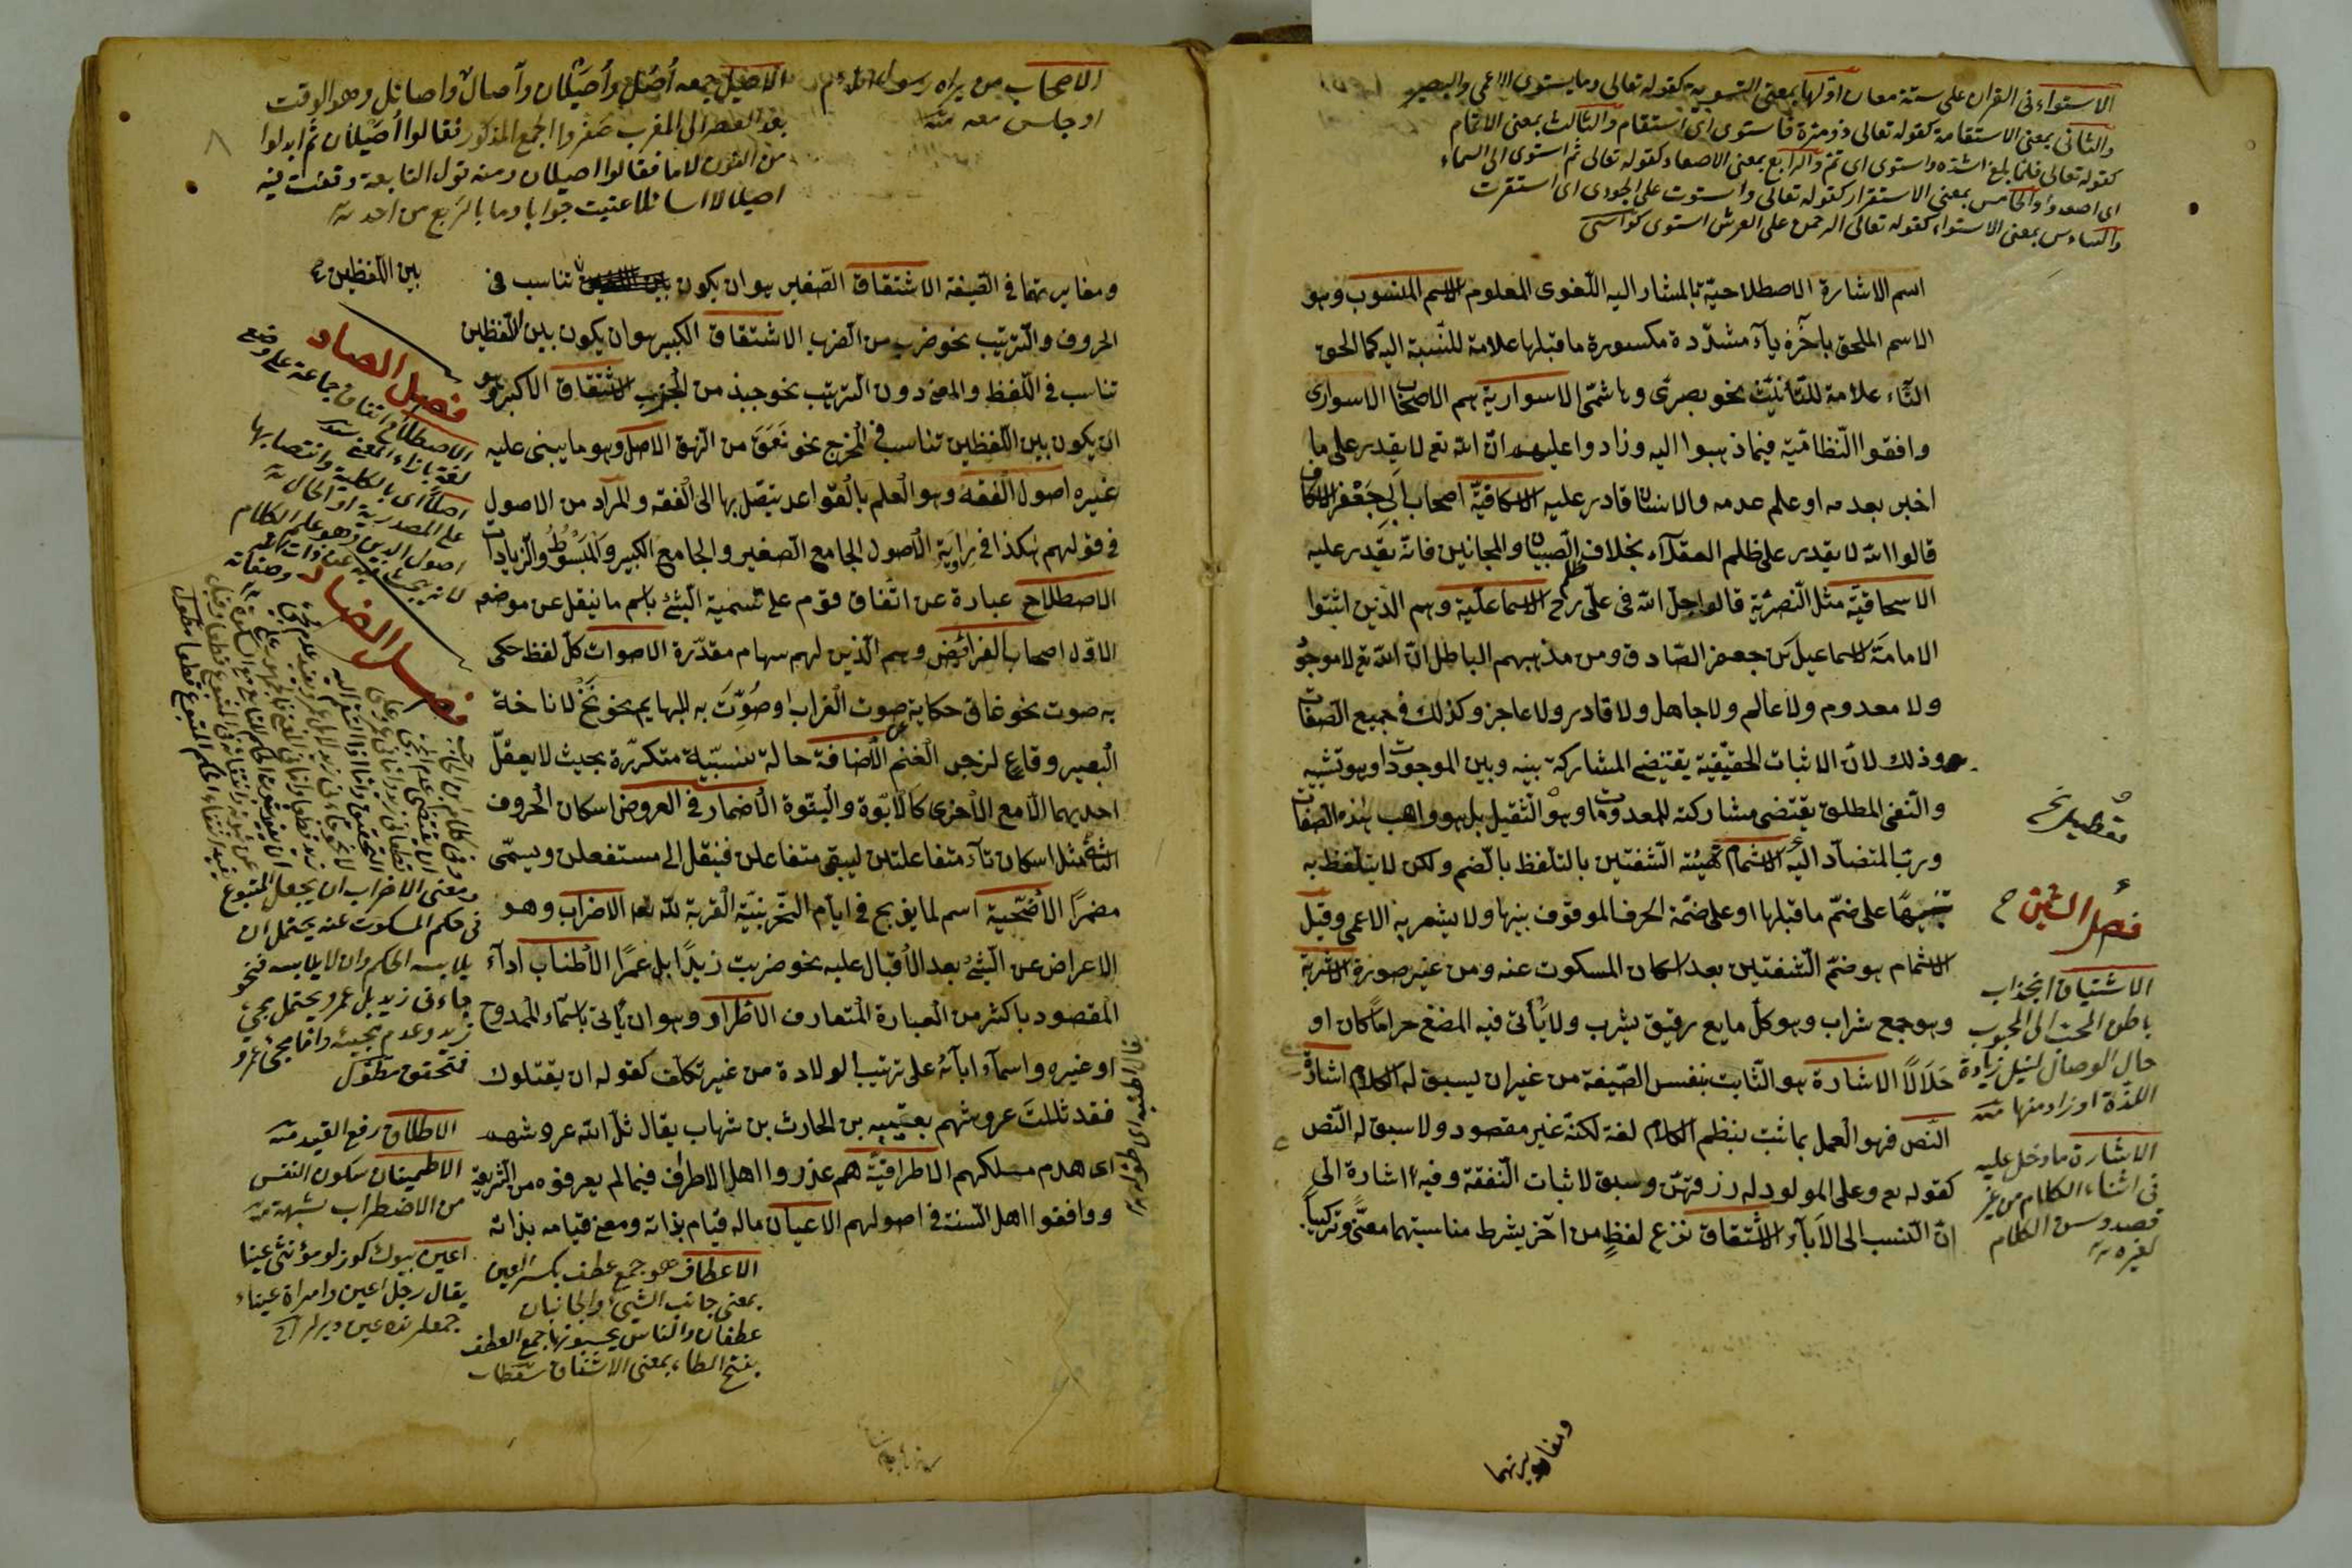 الاستواء فى القران على ستة معان اولها بمعنى التسوية كقوله تعالى وما يستوى الاعمى والبصير
والثانى بمعنى الاستقامة كقوله تعالى ذو مرة فاستوى اى استقام والثالث بمعنى الاتمام
كقوله تعالى فلما بلغ اشده واستوى اى تم والرابع بمعنى الاصعاد كقوله تعالى ثم استوى الى السماء
اى اصعد والخامس بمعنى الاستقرار كقوله تعالى واستوت على الجودى اى استقرت
والسادس بمعنى الاستواء كقوله تعالى الرحمن على العرش استوى
اسم الاشارة الاصطلاحية بالمشار اليه اللغوى المعلوم الاسم المنسوب وهو
الاسم الملحق باخره ياء مشددة مكسورة ما قبلها علامة للنسبة اليه كما الحق
التاء علامة للتأنيث نحو بصرى وهاشمى الاسوارية هم الاصحاب الاسوارى
وافقوا النظامية فيما ذهبوا اليه وزادوا عليهم ان الله تع لا يقدر على ما
اخبر بعدمه او علم عدمه والانسان قادر عليه الاسكافية اصحاب ابى جعفر الاسكاف
قالوا الله لا يقدر على ظلم العقلاء بخلاف ظلم الصبيان والمجانين فانه يقدر عليه
الاسحاقية مثل النصرية قالوا حل الله فى على رض الاسماعلية وهم الذين اثبتوا
الامامة لاسماعيل بن جعفر الصادق ومن مذهبهم الباطل ان الله تع لا موجود
ولا معدوم ولا عالم ولا جاهل ولا قادر ولا عاجز وكذلك فى جميع الصفات
وذلك لان الاثبات الحقيقية يقتضى المشاركة بينه وبين الموجودات وهو تشبيه
والنفى المطلق يقتضى مشاركته للمعدومات وهو التعطيل بل هو واهب هذه الصفات
تعطيل نخ
ورب المتضادات الاشمام تهيئة الشفتين بالتلفظ بالضم ولكن لا يتلفظ به
تنبيها على ضم ما قبلها او على ضمة الحرف الموقوف بينها ولا يشعر به الاعمى وقيل
فصل الشين
الاشمام هو ضم الشفتين بعد اسكان المسكوت عنه ومن غير صوت الاشربة
وهو جمع شراب وهو كل مايع رقيق يشرب ولا يتأتى فيه المضغ حراما كان او
حلالا الاشارة هو الثابت بنفس الصيغة من غير ان يسبق له الكلام اشارة
النص فهو العمل بما ثبت بنظم الكلام لغة لكنه غير مقصود ولا سيق له النص
كقوله تع وعلى المولود له رزقهن وسيق لاثبات النفقة وفيه اشارة الى
ان النسب الى الاباء الاشتقاق نزع لفظ من اخر بشرط مناسبتهما معنى وتركيبا
الاشتياق انجذاب
باطن المحب الى المحبوب
حال الوصال لنيل زيادة
اللذة او زاد منها منه
الاشارة ما دخل عليه
فى اثناء الكلام من غير
قصد وسن الكلام
لغيره
ومغايرتهما
الاصحاب من يراه رسول الله
او جلس معه منه
الاصيل جمعه اصل واصيلان وآصال واصائل وهو الوقت
بعد العصر الى المغرب صغروا الجمع المذكور فقالوا اصيلان ثم ابدلوا
من النون لاما فقالوا اصيلال ومنه قول النابغة وقفت فيه
اصيلالا اسائلها عييت جوابا وما بالربع من احد
ومغايرتهما فى الصيغة الاشتقاق الصغير هو ان يكون تناسب فى
بين اللفظين
الحروف والترتيب نحو ضرب من الضرب الاشتقاق الكبير هو ان يكون بين اللفظين
تناسب فى اللفظ والمعنى دون الترتيب نحو جبذ من الجذب الاشتقاق الاكبر وهو
ان يكون بين اللفظين تناسب فى المخرج نحو نعق من النهق الاصل وهو ما يبنى عليه
غيره اصول الفقه وهو العلم بالقواعد يتصل بها الى الفقه والمراد من الاصول
فى قولهم هكذا فى رواية الاصول الجامع الصغير والجامع الكبير والمبسوط والزيادات
الاصطلاح عبارة عن اتفاق قوم على تسمية الشئ باسم ما ينقل عن موضعه
الاول اصحاب الفرائض وهم الذين لهم سهام مقدرة الاصوات كل لفظ حكى
به صوت نحو غاق حكاية صوت الغراب او صوت به للبهايم نحو نخ لاناخة
البعير وقاع لزجر الغنم الاضافة حالة نسبية متكررة بحيث لا يعقل
احديهما الا مع الاخرى كالابوة والبنوة الاضمار فى العروض اسكان الحروف
الثانى مثل اسكان تاء متفاعلن ليبقى متفاعلن فينقل الى مستفعلن ويسمى
مضمرا الاضحية اسم لما يذبح فى ايام النحر بنية القربة لله تعا الاضراب وهو
الاعراض عن الشئ بعد الاقبال عليه نحو ضربت زيدا بل عمرا الاطناب اداء
المقصود باكثر من العبارة المتعارف الاطراد وهو ان يأتى باسماء الممدوح
او غيره واسماء ابائه على ترتيب الولادة من غير تكلف كقوله ان يقتلوك
فقد ثللت عروشهم بعتيبة بن الحارث بن شهاب يقال ثل الله عروشهم
اى هدم ملكهم الاطرافية هم عذروا اهل الاطراف فيما لم يعرفوه من الشريعة
ووافقوا اهل السنة فى اصولهم الاعيان ماله قيام بذاته ومعنى قيامه بذاته
فصل الصاد
الاصطلاح اتفاق جماعة على وضع
لغة بازاء المعنى
اصلا اى بالكلية وانتصابها
على المصدرية او الحال
اصول الدين وهو علم الكلام
فصل الضاد
ومعنى الاضراب ان يجعل المتبوع
فى حكم المسكوت عنه يحتمل ان
يلابسه الحكم وان لا يلابسه فنحو
جاءنى زيد بل عمرو يحتمل مجئ
زيد وعدم مجيئه
الاطلاق رفع القيد منه
الاطمينان سكون النفس
من الاضطراب بشبهة منه
اعين بيوك كوزلو مؤنثى عينا
يقال رجل اعين وامرأة عيناء
الاعطاف هو جمع عطف بكسر العين
بمعنى جانب الشئ والجانبان
عطفان والناس يحسبونها جمع العطف
بفتح الطاء بمعنى الاشفاق